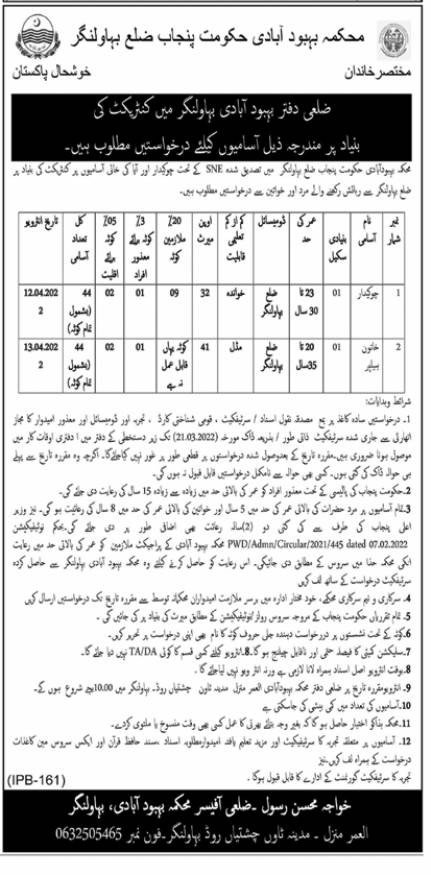 محکمہ بہبود آبادی حکومت پنجاب ضلع بہاولنگر
مختصر خاندان
خوشحال پاکستان
ضلعی دفتر بہبود آبادی بہاولنگر میں کنٹریکٹ کی
بنیاد پر مندرجہ ذیل آسامیوں کیلئے درخواستیں مطلوب ہیں۔
محکمہ بہبود آبادی حکومت پنجاب ضلع بہاولنگر میں تصدیق شدہ SNE کے تحت چوکیدار اور آیا کی خالی آسامیوں پر کنٹریکٹ کی بنیاد پر
ضلع بہاولنگر سے رہائش رکھنے والے مرد اور خواتین سے درخواستیں مطلوب ہیں۔
نمبر شمار | نام آسامی | بنیادی سکیل | عمر کی حد | ڈومیسائل | کم از کم تعلیمی قابلیت | اوپن میرٹ | 20٪ ملازمین کوٹہ | 3٪ کوٹہ برائے معذور افراد | 05٪ کوٹہ برائے اقلیت | کل تعداد آسامی | تاریخ انٹرویو
1 | چوکیدار | 01 | 23 تا 30 سال | ضلع بہاولنگر | خواندہ | 32 | 09 | 01 | 02 | 44 (بشمول تمام کوٹہ) | 12.04.2022
2 | خاتون ہیلپر | 01 | 20 تا 35 سال | ضلع بہاولنگر | مڈل | 41 | کوٹہ یہاں قابل عمل نہ ہے | 01 | 02 | 44 (بشمول تمام کوٹہ) | 13.04.2022
شرائط و ہدایات:
1۔ درخواستیں سادہ کاغذ پر بمع مصدقہ نقول اسناد / سرٹیفکیٹ، قومی شناختی کارڈ، تجربہ اور ڈومیسائل اور معذور امیدوار کا مجاز
اتھارٹی سے جاری شدہ سرٹیفکیٹ ذاتی طور / بذریعہ ڈاک مورخہ (21.03.2022) تک زیر دستخطی کے دفتر میں دفتری اوقات کار میں
موصول ہونا ضروری ہیں۔ مقررہ تاریخ کے بعد وصول شدہ درخواستوں پر قطعی طور پر غور نہیں کیا جائے گا۔ اگرچہ وہ مقررہ تاریخ سے پہلے
ہی حوالہ ڈاک کی گئی ہوں۔ کسی بھی حوالہ سے نامکمل درخواستیں قابل قبول نہ ہوں گی۔
2۔ حکومت پنجاب کی پالیسی کے تحت معذور افراد کو عمر کی بالائی حد میں زیادہ سے زیادہ 15 سال کی رعایت دی جائے گی۔
3۔ تمام آسامیوں پر مرد حضرات کی بالائی عمر کی حد میں 5 سال اور خواتین کی بالائی عمر کی حد میں 8 سال کی رعایت ہو گی۔ نیز وزیر
اعلیٰ پنجاب کی طرف سے کی گئی دو (2) سالہ رعایت بھی اضافی طور پر دی جائے گی۔ بحکم نوٹیفیکیشن
PWD/Admn/Circular/2021/445 dated 07.02.2022 محکمہ بہبود آبادی کے پراجیکٹ ملازمین کو عمر کی بالائی حد میں رعایت
انکی محکمہ ہذا میں سروس کے مطابق دی جائیگی۔ اس رعایت کو حاصل کرنے کیلئے وہ محکمہ بہبود آبادی پنجاب سے حاصل کردہ
سرٹیفکیٹ درخواست کے ساتھ لف کریں
4۔ سرکاری و نیم سرکاری محکمے، خود مختار ادارہ میں برسر ملازمت امیدواران محکمانہ توسط سے مقررہ تاریخ تک درخواستیں ارسال کریں
5۔ تمام تقرریاں حکومت پنجاب کے مروجہ سروس رولز / نوٹیفیکیشن کے مطابق میرٹ کی بنیاد پر کی جائیں گی۔
6۔ کوٹہ کے تحت نشستوں پر درخواست دہندہ جلی حروف کوٹہ کا نام بھی اپنی درخواست پر تحریر کریں۔
7۔ سلیکشن کمیٹی کا فیصلہ حتمی اور ناقابل چیلنج ہو گا۔ 8۔ انٹرویو کیلئے کسی قسم کا کوئی TA/DA نہیں دیا جائے گا۔
8۔ بوقت انٹرویو اصل اسناد ہمراہ لانا لازمی ہے ورنہ انٹرویو نہیں لیا جائے گا۔
9۔ انٹرویو مقررہ تاریخ پر ضلعی دفتر محکمہ بہبود آبادی العمر منزل مدینہ ٹاون چشتیاں روڈ۔ بہاولنگر میں 10.00 بجے شروع ہوں گے۔
10۔ آسامیوں کی تعداد میں کمی بیشی کی جا سکتی ہے
11۔ محکمہ ہذا کو اختیار حاصل ہو گا کہ بغیر وجہ بتائے بھرتی کا عمل کسی بھی وقت منسوخ یا ملتوی کر دے۔
12۔ آسامیوں پر متعلقہ تجربہ کا سرٹیفیکیٹ اور مزید تعلیم یافتہ امیدوار مطلوبہ اسناد، سند حافظ قرآن اور ایکس سروس مین کاغذات
درخواست کے ہمراہ لف کریں۔ نیز
تجربہ کا سرٹیفکیٹ گورنمنٹ کے ادارے کا قابل قبول ہو گا۔
(IPB-161)
خواجہ محسن رسول۔ ضلعی آفیسر محکمہ بہبود آبادی، بہاولنگر
العمر منزل۔ مدینہ ٹاون چشتیاں روڈ بہاولنگر۔ فون نمبر 0632505465